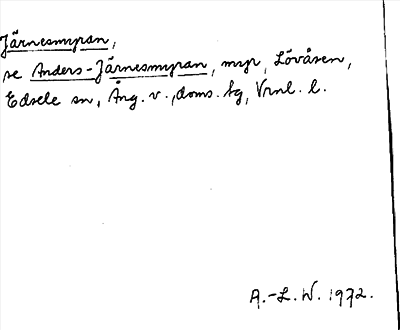 Järnesmyran,
se Anders-Järnesmyran, myr, Lövåsen,
Edsele sn, Ång. v., doms. hg, Vrnl. l.
A.-L. W. 1972.